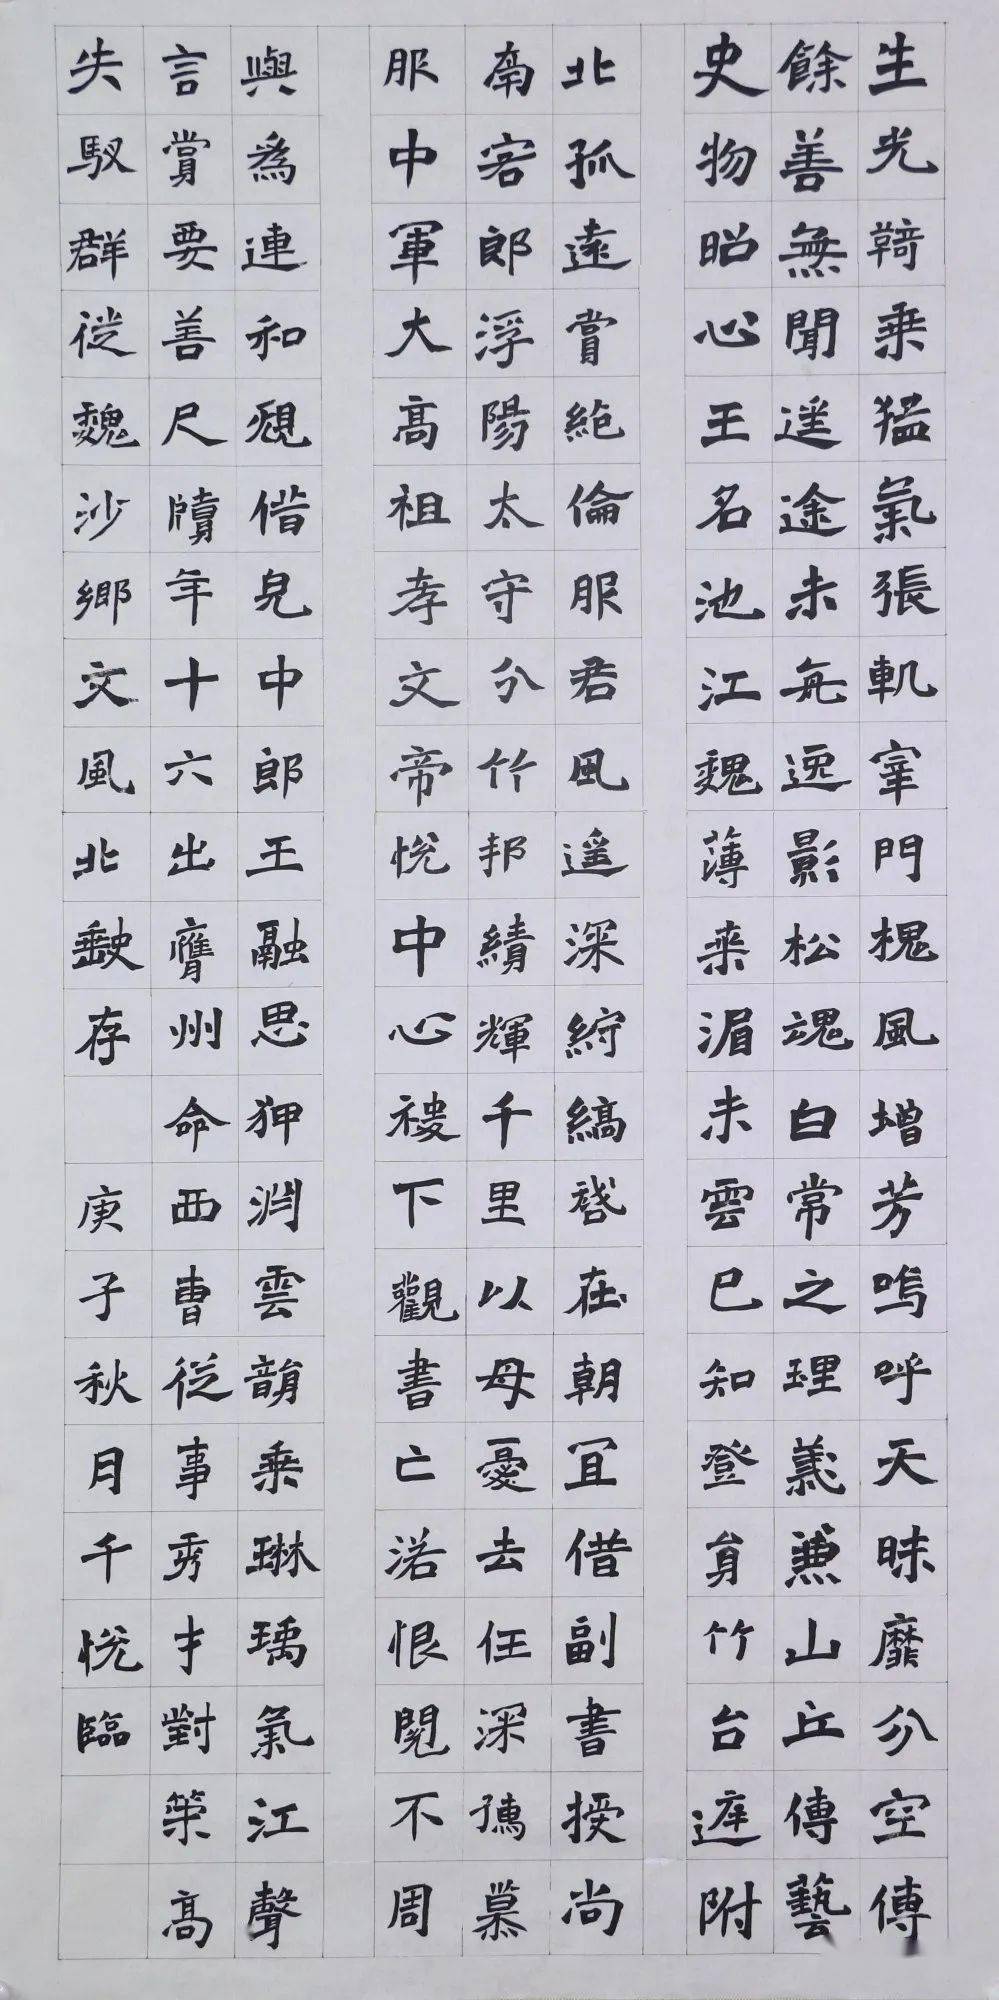 生光乘猛氣張軌宰門槐風增芳嗚呼天昧靡分空傳
餘善無聞遥途未逸影松魂白常之理義兼山丘傳藝
史物昭心王名池江魏薄来湄未雲已知登身竹台附
北孤遠賞絶倫服君風遥深紵縞啓在朝宜借副書授尚
南客郎浮陽太守分竹邦績輝千里以母憂去任深孺慕
服中軍大高祖孝文帝悦中心下觀書亡渃恨閲不周
與為連和借皃中郎王融思狎淵雲韻乘琳瑀氣江聲
言賞要善尺牘年十六出膺州命西曹從事秀才對策高
失馭群從魏沙鄉文風北存
庚子秋月千悦臨